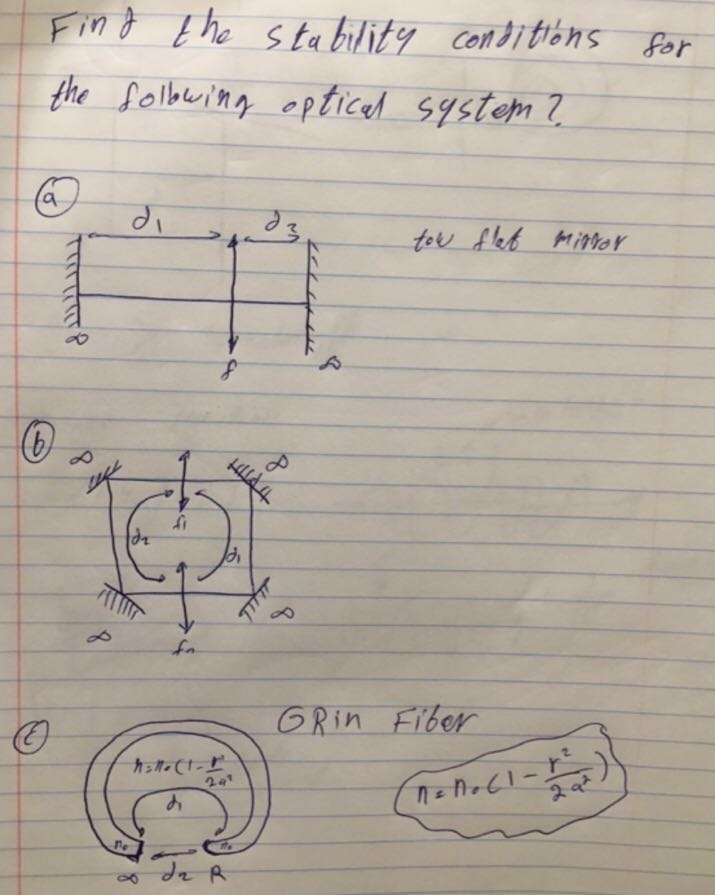 Find the stability conditions for
the following optical system?
a
d₁ d₂
tow flat mirror
∞ f ∞
b
∞ ∞
f₁
d₂ d₁
∞ ∞
f₂
c GRin Fiber
n=n₀(1-r²/2a²
n=n₀(1-r²/2a²)
d₁
n₀ n₀
∞ d₂ R